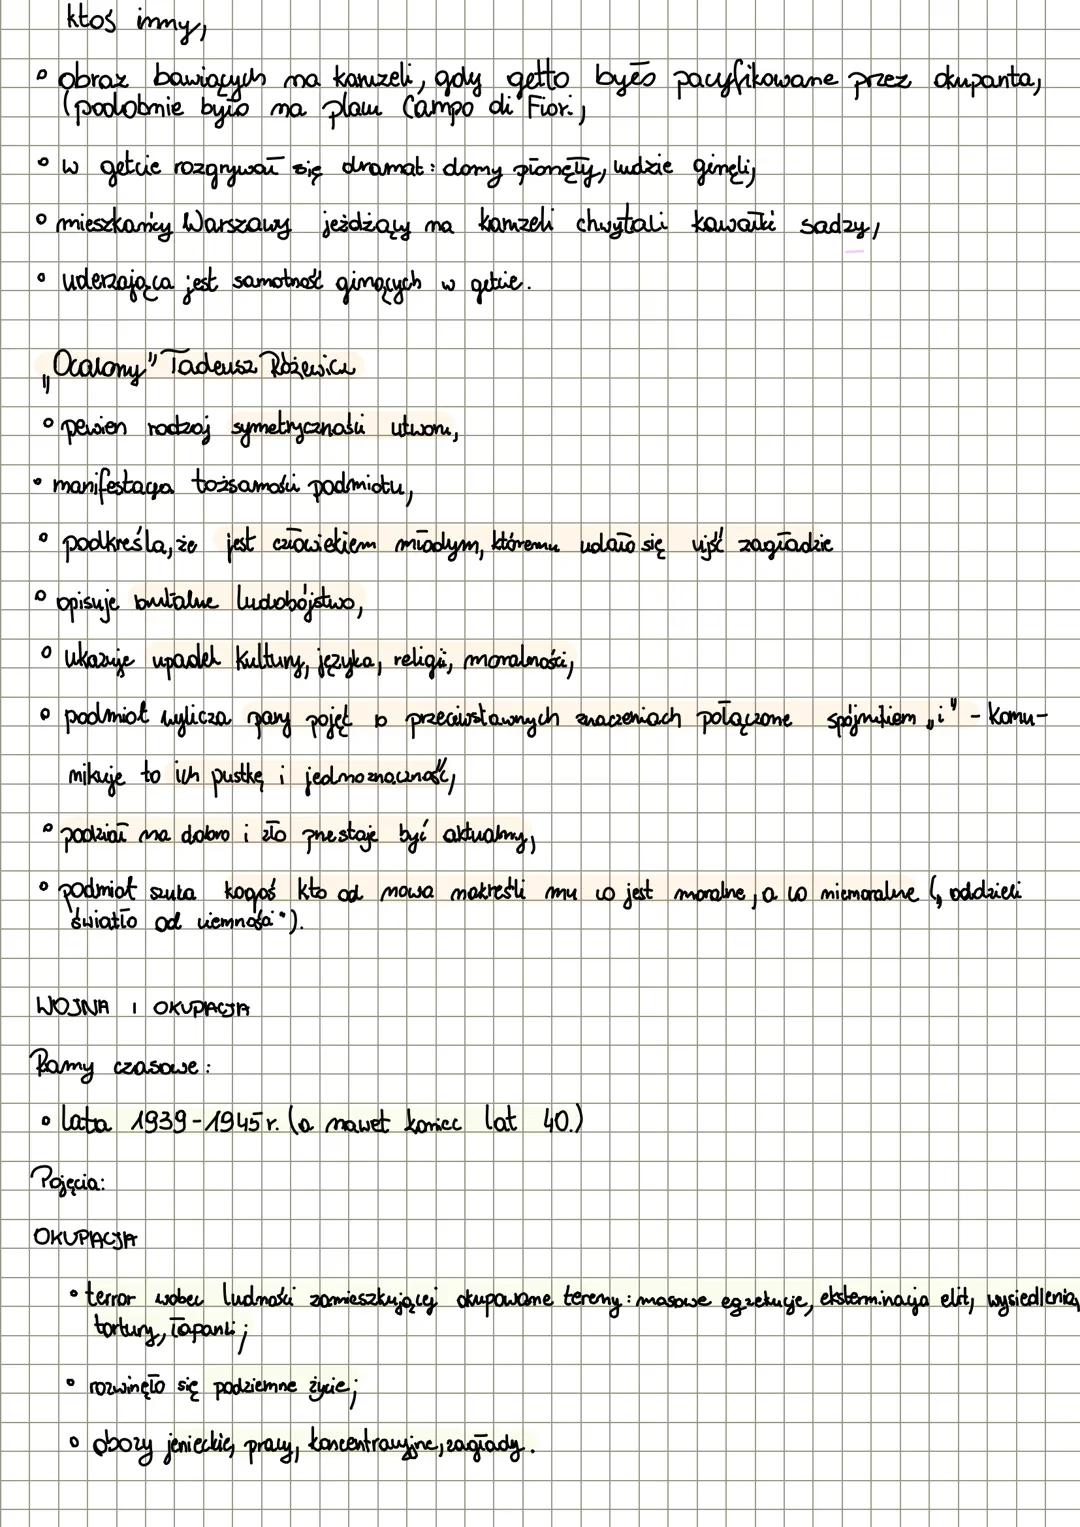 ktoś inny,
° obraz bawiących na karuzeli, gdy getto było pacyfikowane przez okupanta,
(podobnie było na placu Campo di Fiori)
° w getcie rozgrywał się dramat: domy płonęły, ludzie ginęli,
° mieszkańcy Warszawy jeżdżący na karuzeli chwytali kawałki sadzy,
° uderzająca jest samotność ginących w getcie.
„Ocalony" Tadeusz Różewicz
° pewien rodzaj symetryczności utworu,
° manifestacja tożsamości podmiotu,
° podkreśla, że jest człowiekiem młodym, któremu udało się ujść zagładzie
° opisuje brutalne ludobójstwo,
° ukazuje upadek kultury, języka, religii, moralności,
° podmiot wylicza pary pojęć o przeciwstawnych znaczeniach połączone spójnikiem „i" - komu-
nikuje to ich pustkę i jednoznaczność,
° podział na dobro i zło przestaje być aktualny,
° podmiot szuka kogoś kto od nowa nakreśli mu co jest moralne, a co niemoralne („oddzieli
światło od ciemności").
WOJNA I OKUPACJA
Ramy czasowe:
• lata 1939-1945 r. (a nawet koniec lat 40.)
Pojęcia:
OKUPACJA
• terror wobec ludności zamieszkującej okupowane tereny: masowe egzekucje, eksterminacja elit, wysiedlenia,
tortury, łapanki;
° rozwinęło się podziemne życie;
° obozy jenieckie, pracy, koncentracyjne, zagłady.